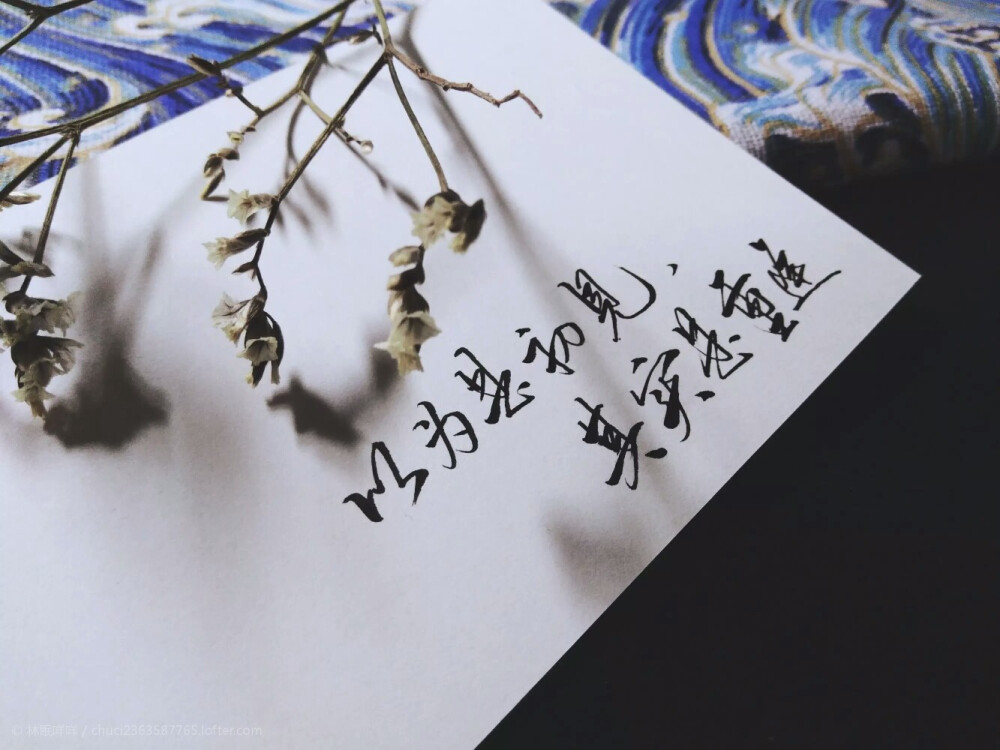 以为是初見，
其实是重逢
/ chuci2383587765.lofter.com